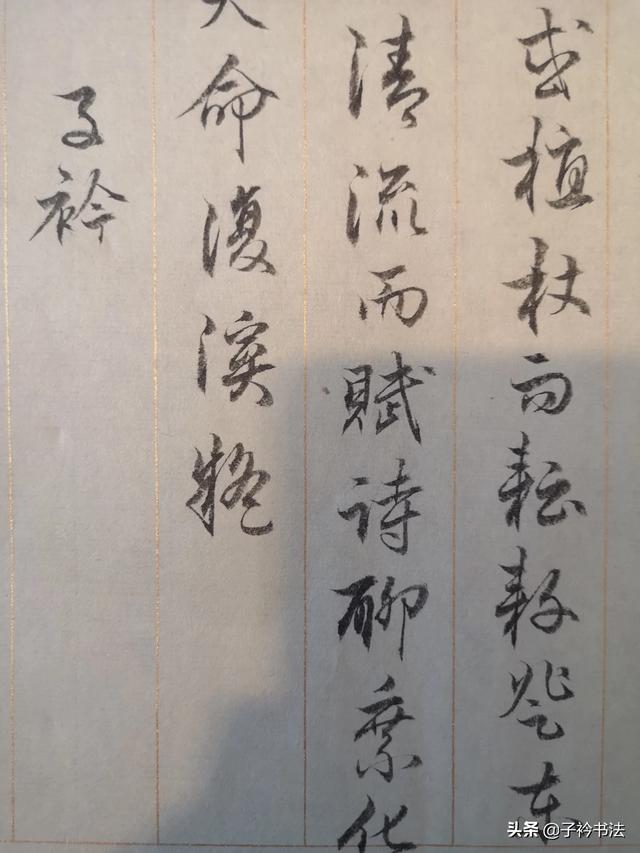 或植杖而耘耔登东
清流而賦诗聊乘化
天命復溪疑
子衿
头条 @子衿书法